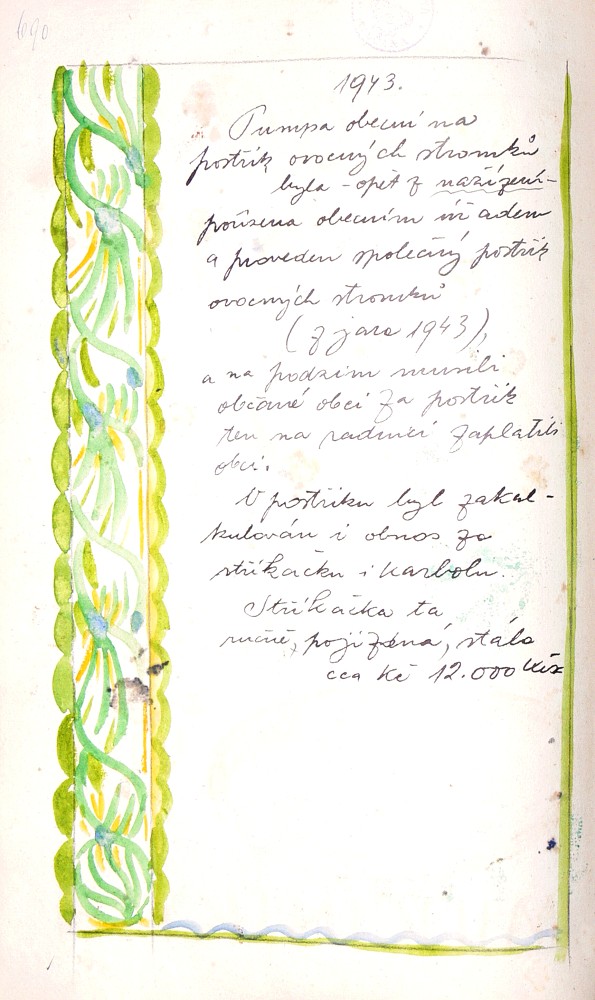 690
1943.
Pumpa obecní na
postřik ovocných stromků
byla - opět z nařízení -
pořízena obecním úřadem
a proveden společný postřik
ovocných stromků
(z jara 1943),
a na podzim musili
občané obci za postřik
ten na radnici zaplatiti
obci.
V postřiku byl zakal-
kulován i obnos za
stříkačku i karbolu.
Stříkačka ta
ručně, pojízdná, stála
cca Kč 12.000